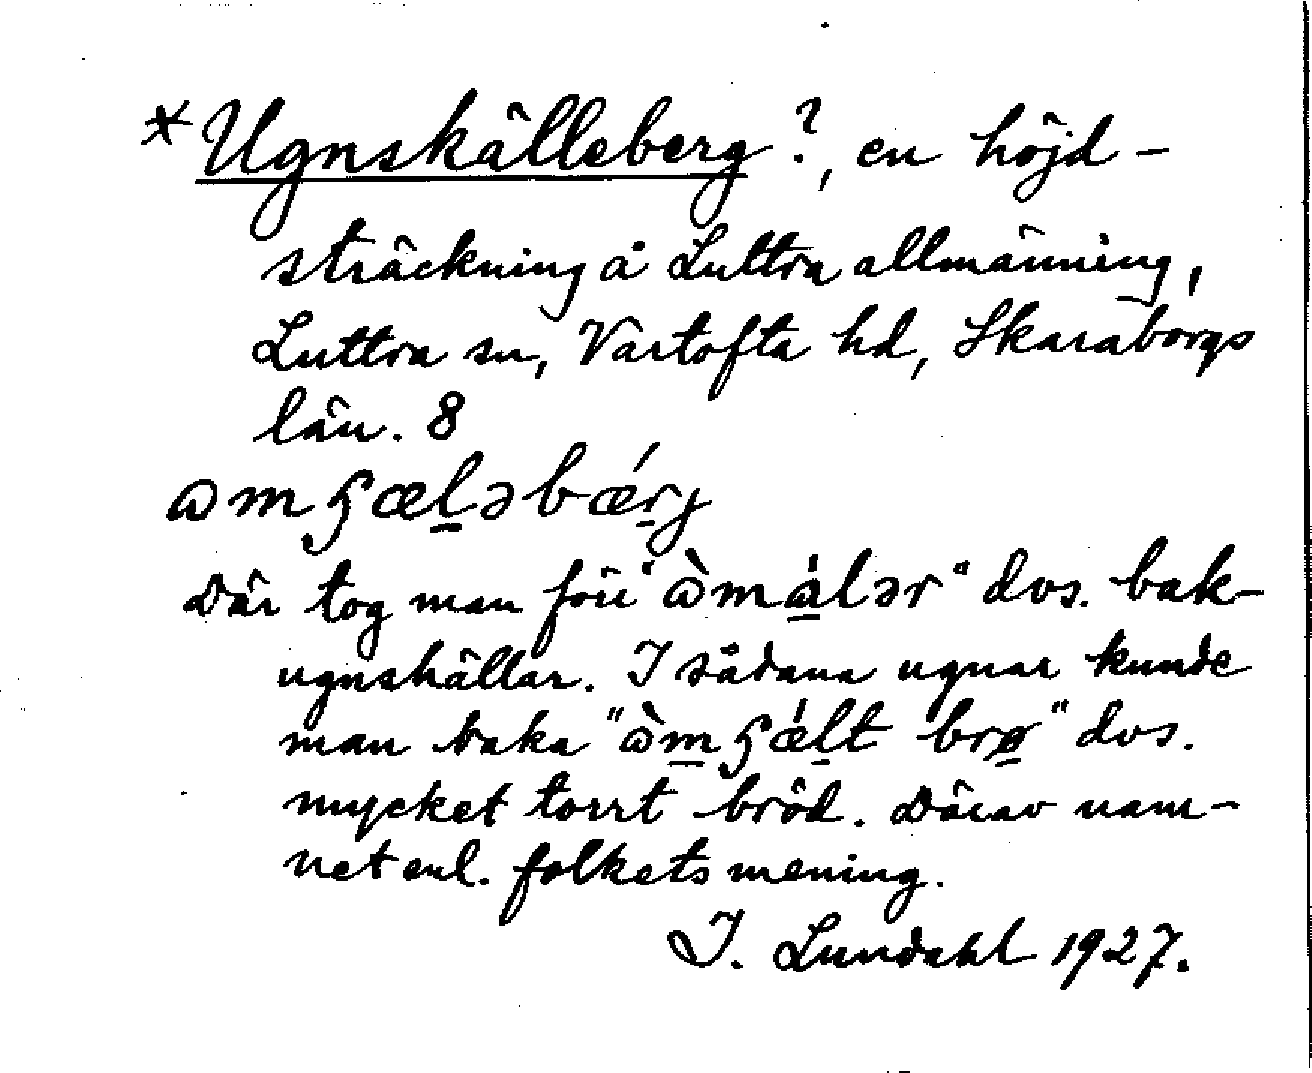 *Ugnskälleberg?, en höjd-
sträckning å Luttra allmänning,
Luttra sn, Vartofta hd, Skaraborgs
län. 8
ɷmʂæḻəbǽṟj
Där tog man förr "ɷ̀má̱lər" dvs. bak-
ugnshällar. I sådana ugnar kunde
man baka "ɷ̀m̱ʂǽḻt brø̱" dvs.
mycket torrt bröd. Därav nam-
net enl. folkets mening.
I. Lundahl 1927.